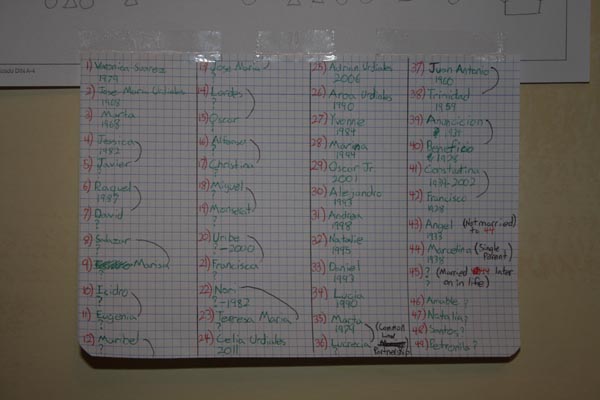 1) Veronica Suarez
1979
2) Jose Maria Urdiales
1968
3) Marta
1968
4) Jessica
1982
5) Javier
?
6) Raquel
1987
7) David
?
8) Salazar
?
9) Maria
?
10) Isidro
?
11) Eugenia
?
12) Maribel
?
13) Jose Maria
?
14) Lordes
?
15) Oscar
?
16) Alfonso
?
17) Christina
?
18) Miguel
?
19) Monserat
?
20) Uribe
? - 2000
21) Francisca
?
22) Non
? - 1982
23) Teresa Maria
?
24) Celia Urdiales
2011
25) Adrian Urdiales
2006
26) Aroa Urdiales
1990
27) Yvonne
1984
28) Marina
1994
29) Oscar Jr.
2001
30) Alejandro
1993
31) Andrea
1998
32) Natalie
1995
33) Daniel
1993
34) Lucia
1990
35) Marta
1979
(Common
Law
Partnership)
36) Lucrecia
?
37) Juan Antonio
1960
38) Trinidad
1959
39) Anuncion
1931
40) Benefico
1928
41) Constantina
1937-2002
42) Francisco
1928
43) Angel (Not married
1933 to 44)
44) Marcelina (Single
1938 Parent)
45) ? (Married later
on in life)
46) Amable ?
47) Natalia ?
48) Santos ?
49) Petronila ?